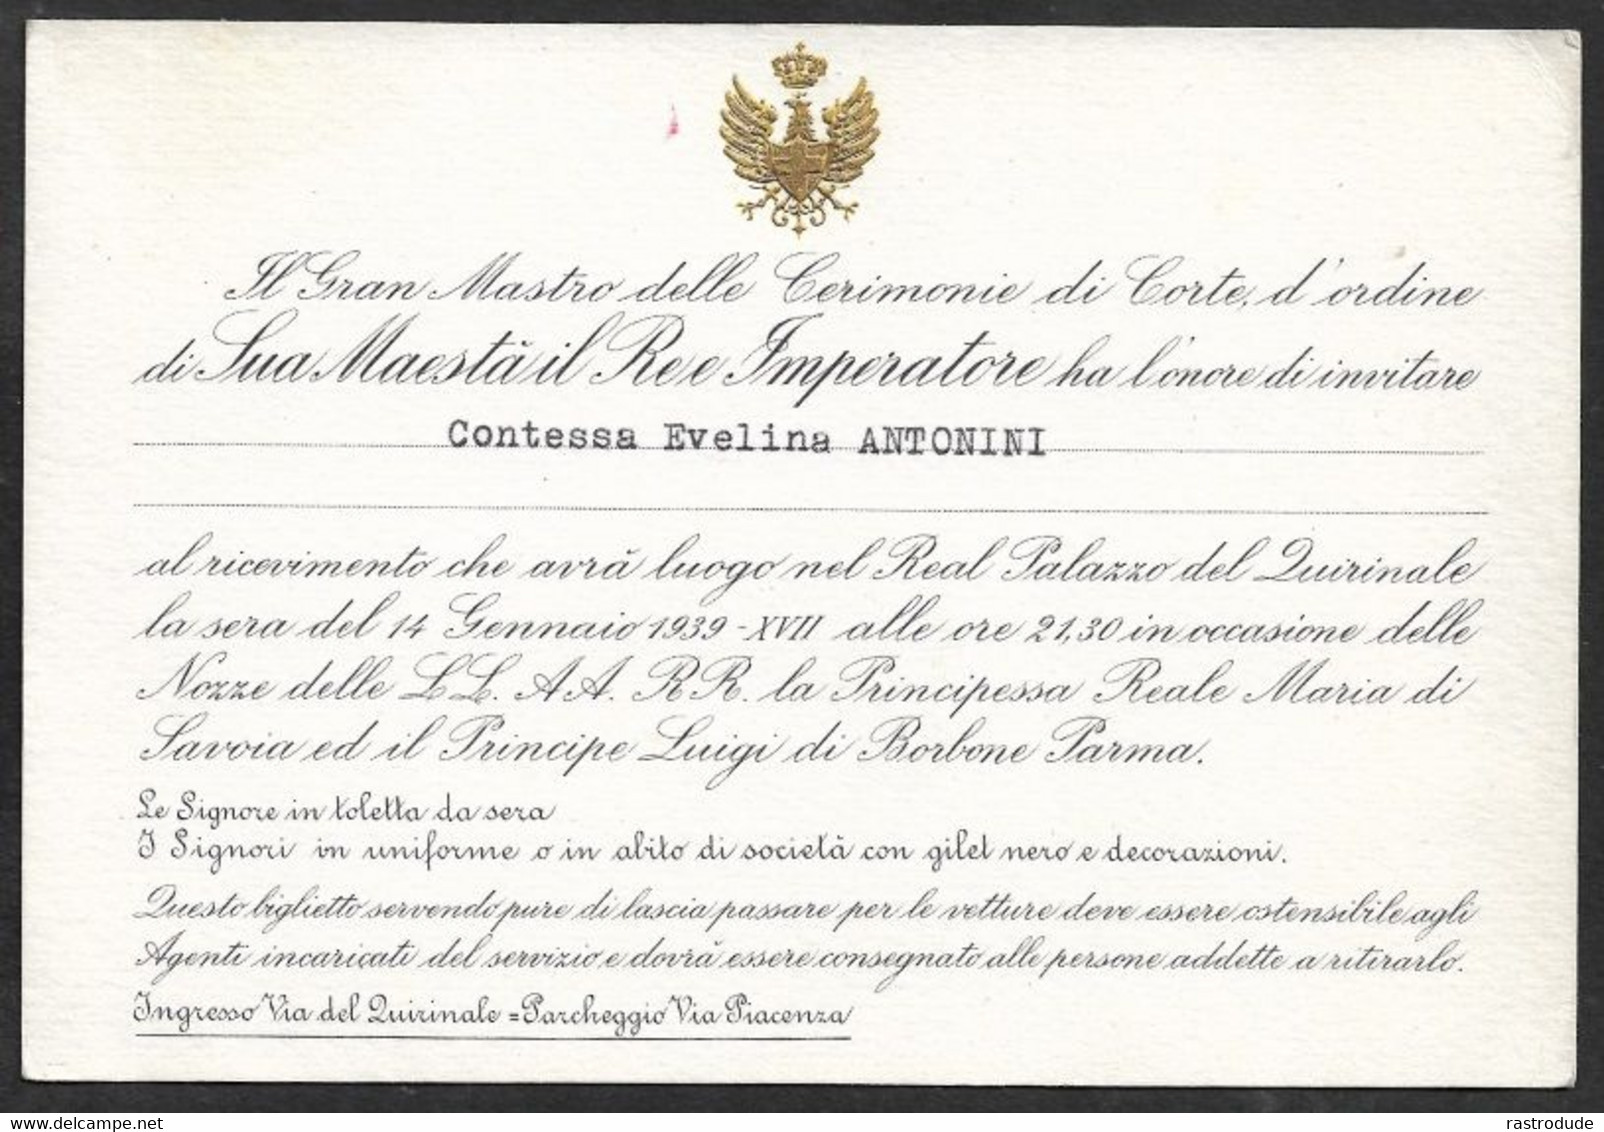 Il Gran Mastro delle Cerimonie di Corte, d'ordine
di Sua Maestà il Re e Imperatore ha l'onore di invitare
Contessa Evelina ANTONINI
al ricevimento che avrà luogo nel Real Palazzo del Quirinale
la sera del 14 Gennaio 1939-XVII alle ore 21,30 in occasione delle
Nozze delle LL. AA. RR. la Principessa Reale Maria di
Savoia ed il Principe Luigi di Borbone Parma.
Le Signore in toletta da sera
I Signori in uniforme o in abito di società con gilet nero e decorazioni.
Questo biglietto servendo pure di lascia passare per le vetture deve essere ostensibile agli
Agenti incaricati del servizio e dovrà essere consegnato alle persone addette a ritirarlo.
Ingresso Via del Quirinale = Parcheggio Via Piacenza
delcampe.net
rastrodude